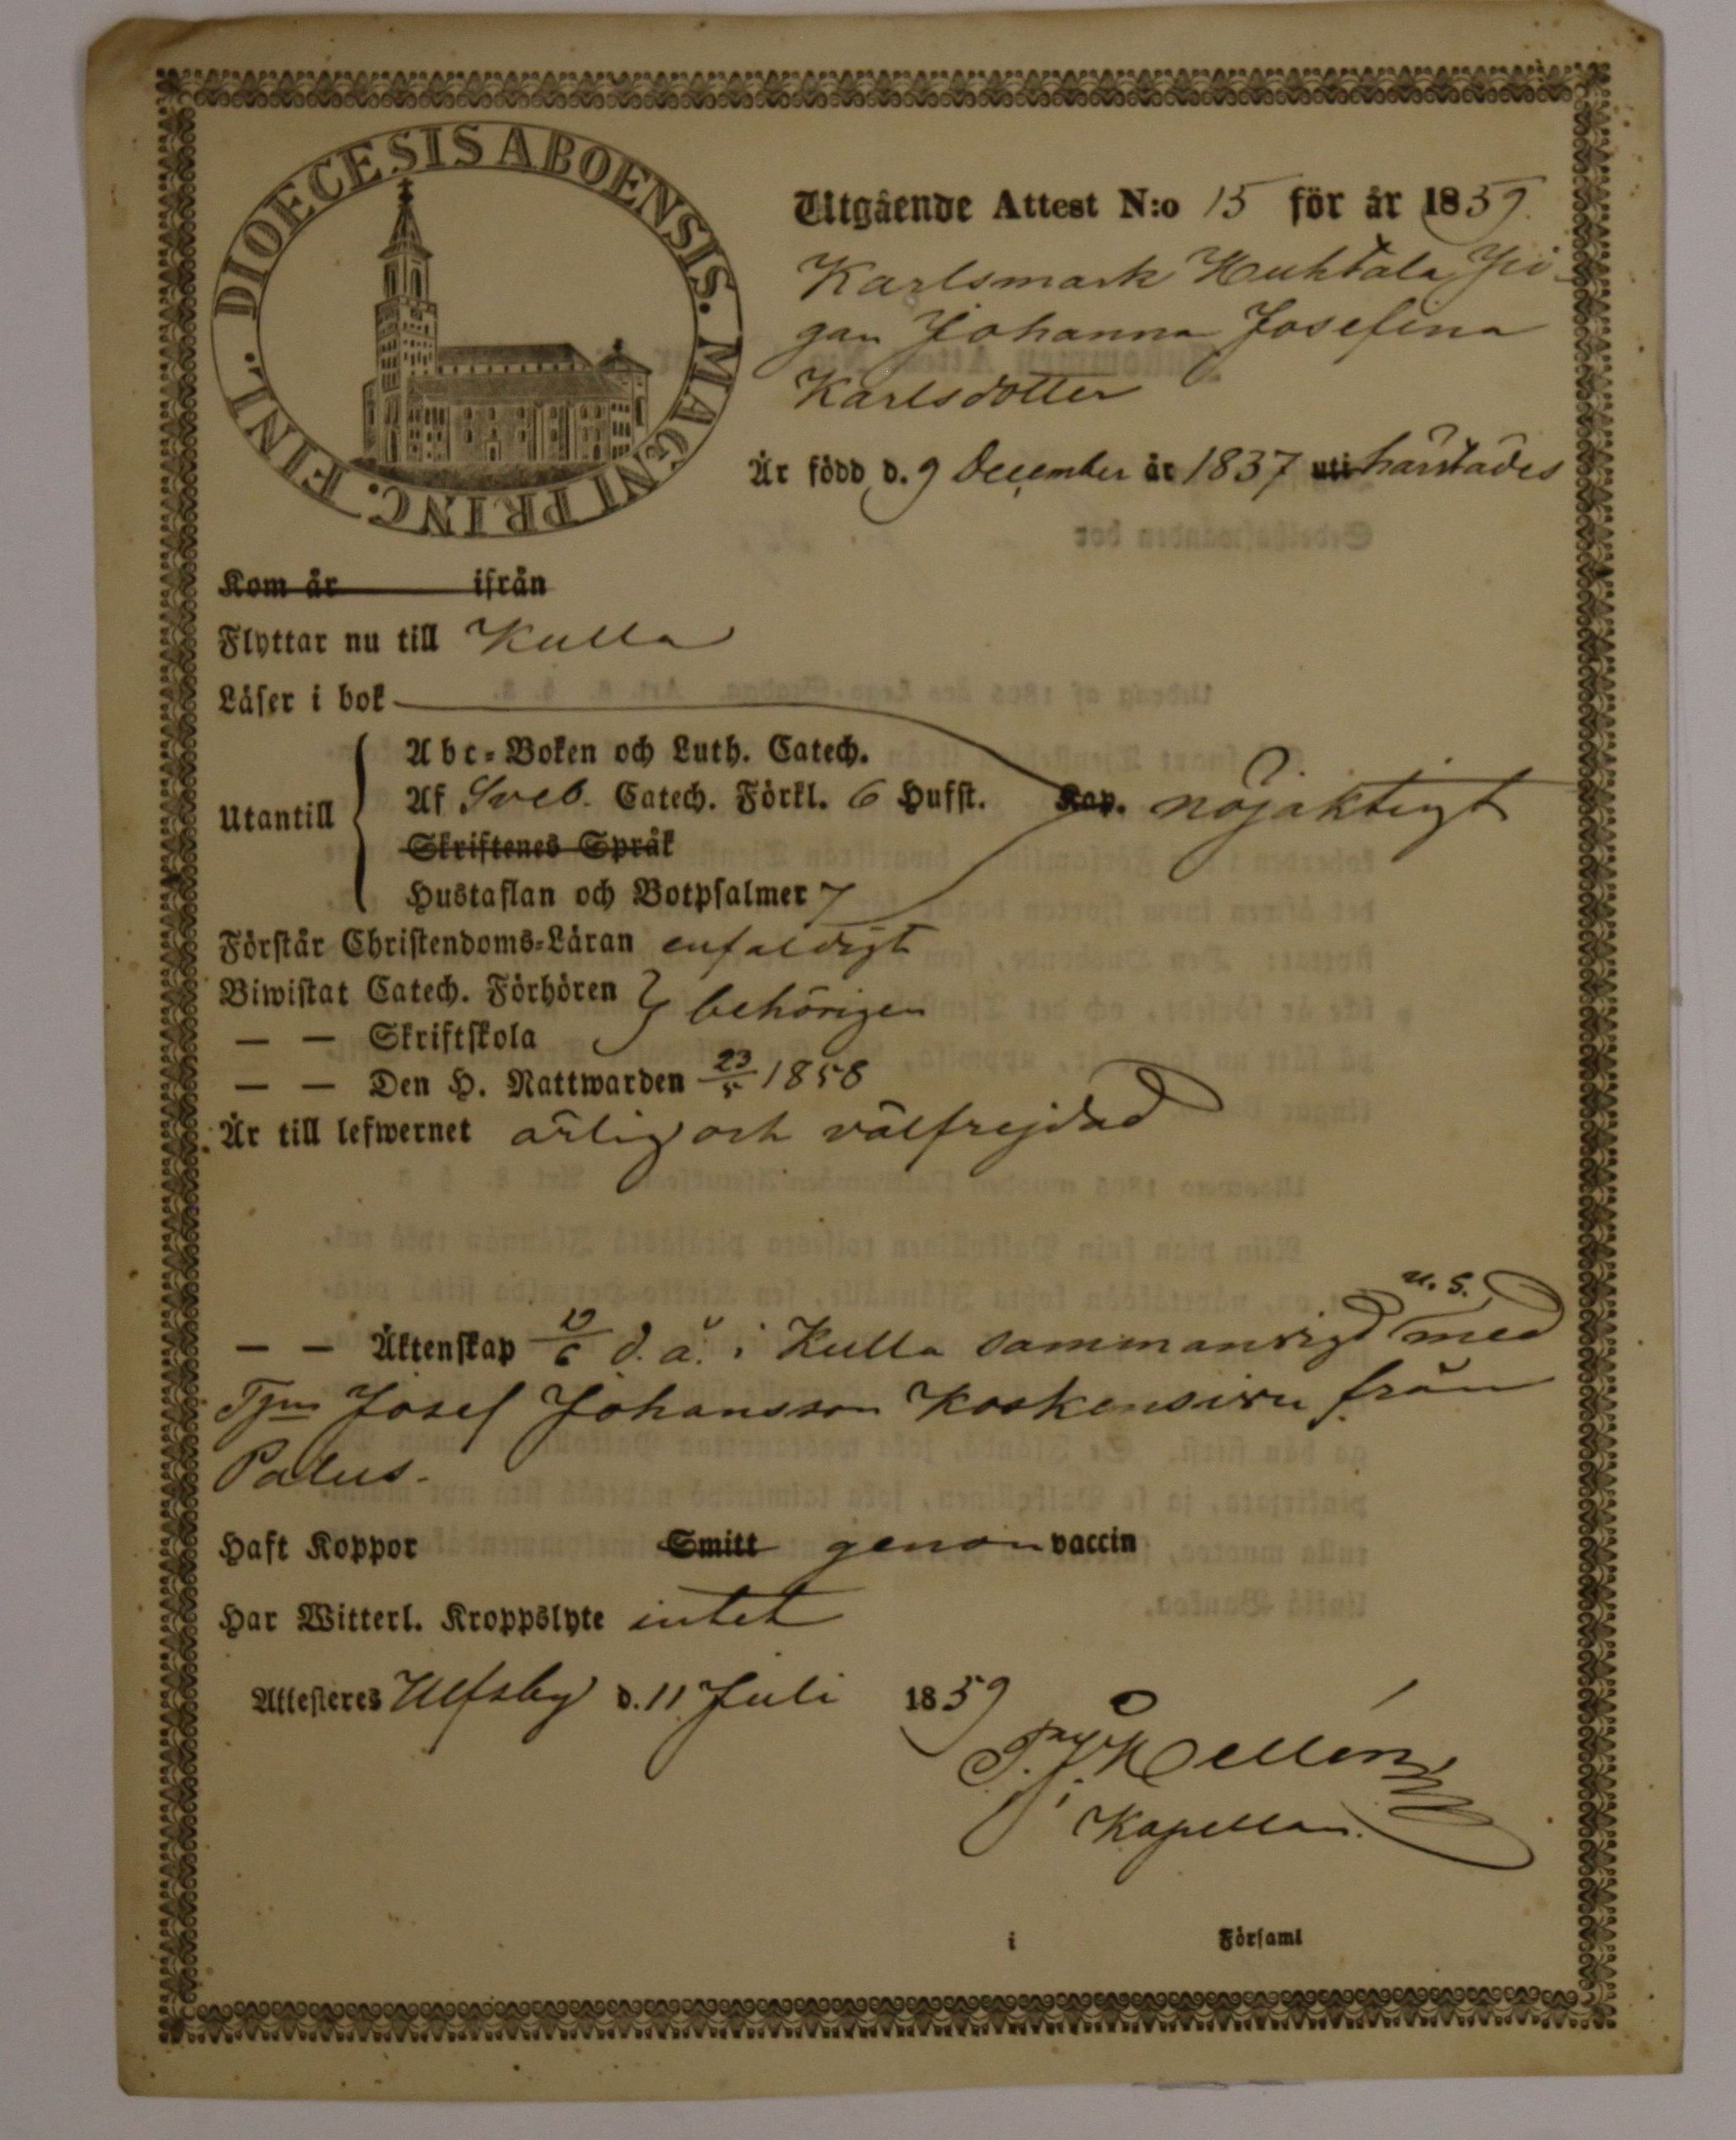 DIOECESIS ABOENSIS. MAGNI PRINC. FINL.
Utgående Attest N:o 15 för år 1859.
Karlsmark Huhtala Pi-
gan Johanna Josefina
Karlsdotter
Är född d. 9 December år 1837 uti härstädes
Kom år ifrån
Flyttar nu till Kulla
Läser i bok
Utantill
Abc-Boken och Luth. Catech.
Af Sveb. Catech. Förkl. 6 Hufst. Kap. nöjaktigt
Skriftenes Språk
Hustaflan och Botpsalmer 7
Förstår Christendoms-Läran enfaldigt
Biwistat Catech. Förhören } behörigen
— — Skriftskola
— — Den H. Nattwarden 23/5 1858
Är till lefwernet ärlig och välfrejdad
u. s.
— — Äktenskap d. å. i Kulla sammanvigd med
Josef Johansson från
Palus.
Haft Koppor Smitt genom vaccin
Har Witterl. Kroppslyte intet
Attesteres Ulfsby d. 11 Juli 1859
Hellén
Kapellan.
i Församl